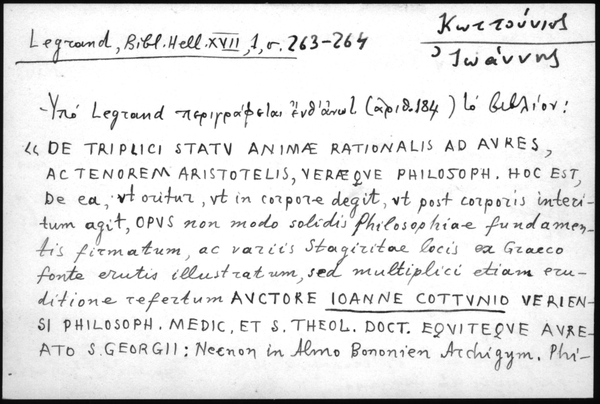 Κωττούνιος
Ἰωάννης
Legrand, Bibl. Hell. XVII, 1, σ. 263-264
Ὑπό Legrand περιγράφεται ἔνθ' ἀνωτ. (ἀριθ. 184) τό βιβλίον:
« DE TRIPLICI STATV ANIMÆ RATIONALIS AD AVRES,
AC TENOREM ARISTOTELIS, VERÆQVE PHILOSOPH. HOC EST,
De ea, vt oritur, vt in corpore degit, vt post corporis interi-
tum agit, OPVS non modo solidis Philosophiae fundamen-
tis firmatum, ac variis Stagiritae locis ex Graeco
fonte erutis illustratum, sed multiplici etiam eru-
ditione refertum AVCTORE IOANNE COTTVNIO VERIEN-
SI PHILOSOPH. MEDIC, ET S. THEOL. DOCT. EQVITEQVE AVRE-
ATO S. GEORGII: Necnon in Almo Bononien Archigym. Phi-